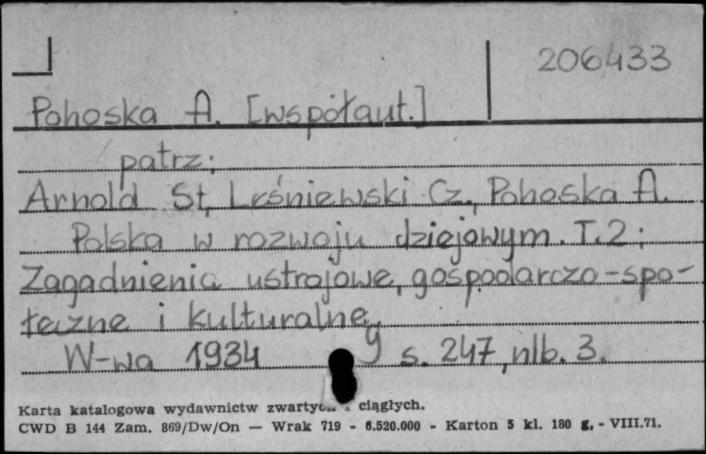 206433
Pohoska A. [współaut.]
patrz:
Arnold St, Leśniewski Cz., Pohoska A.
Polska w rozwoju dziejowym. T.2:
Zagadnienia ustrojowe, gospodarczo-spo-
łeczne i kulturalne
W-wa 1934 s. 247, nlb. 3.
Karta katalogowa wydawnictw zwartych i ciągłych.
CWD B 144 Zam. 869/Dw/On — Wrak 719 - 6.520.000 - Karton 5 kl. 180 g. - VIII.71.